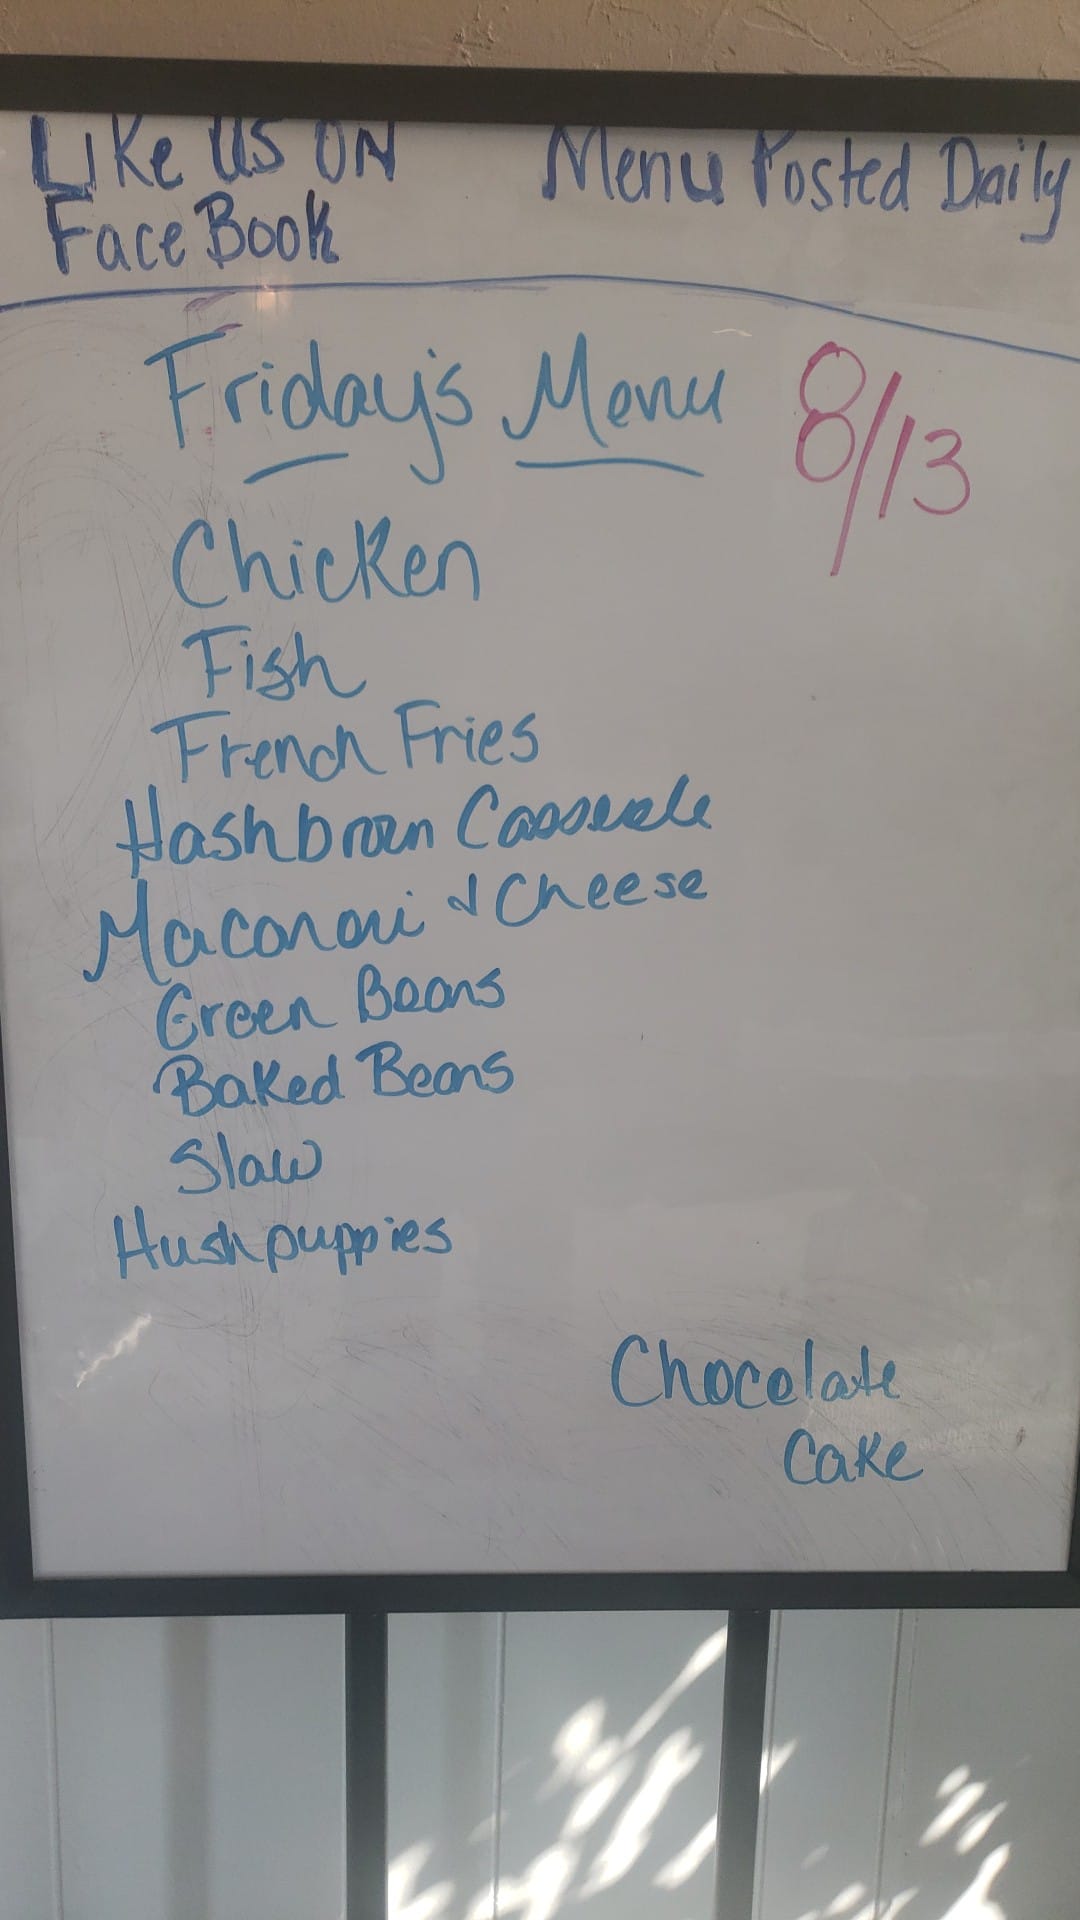 Like US ON
FaceBook
Menu Posted Daily
Friday's Menu 8/13
Chicken
Fish
French Fries
Hashbrown Casserole
Maconoui & Cheese
Green Beans
Baked Beans
Slaw
Hushpuppies
Chocolate
Cake